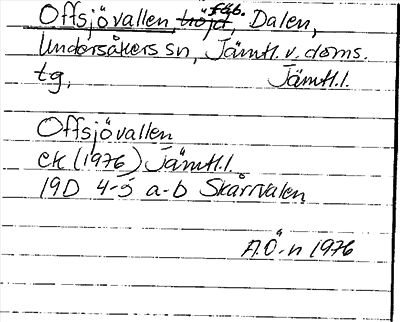 Offsjövallen, höjd, fäb. Dalen,
Undersåkers sn, Jämtl. v. doms.
tg, Jämtl.l.
Offsjövallen
ek (1976) Jämtl.l.
19D 4-5 a-b Skårrvalen
A.Ö-n 1976